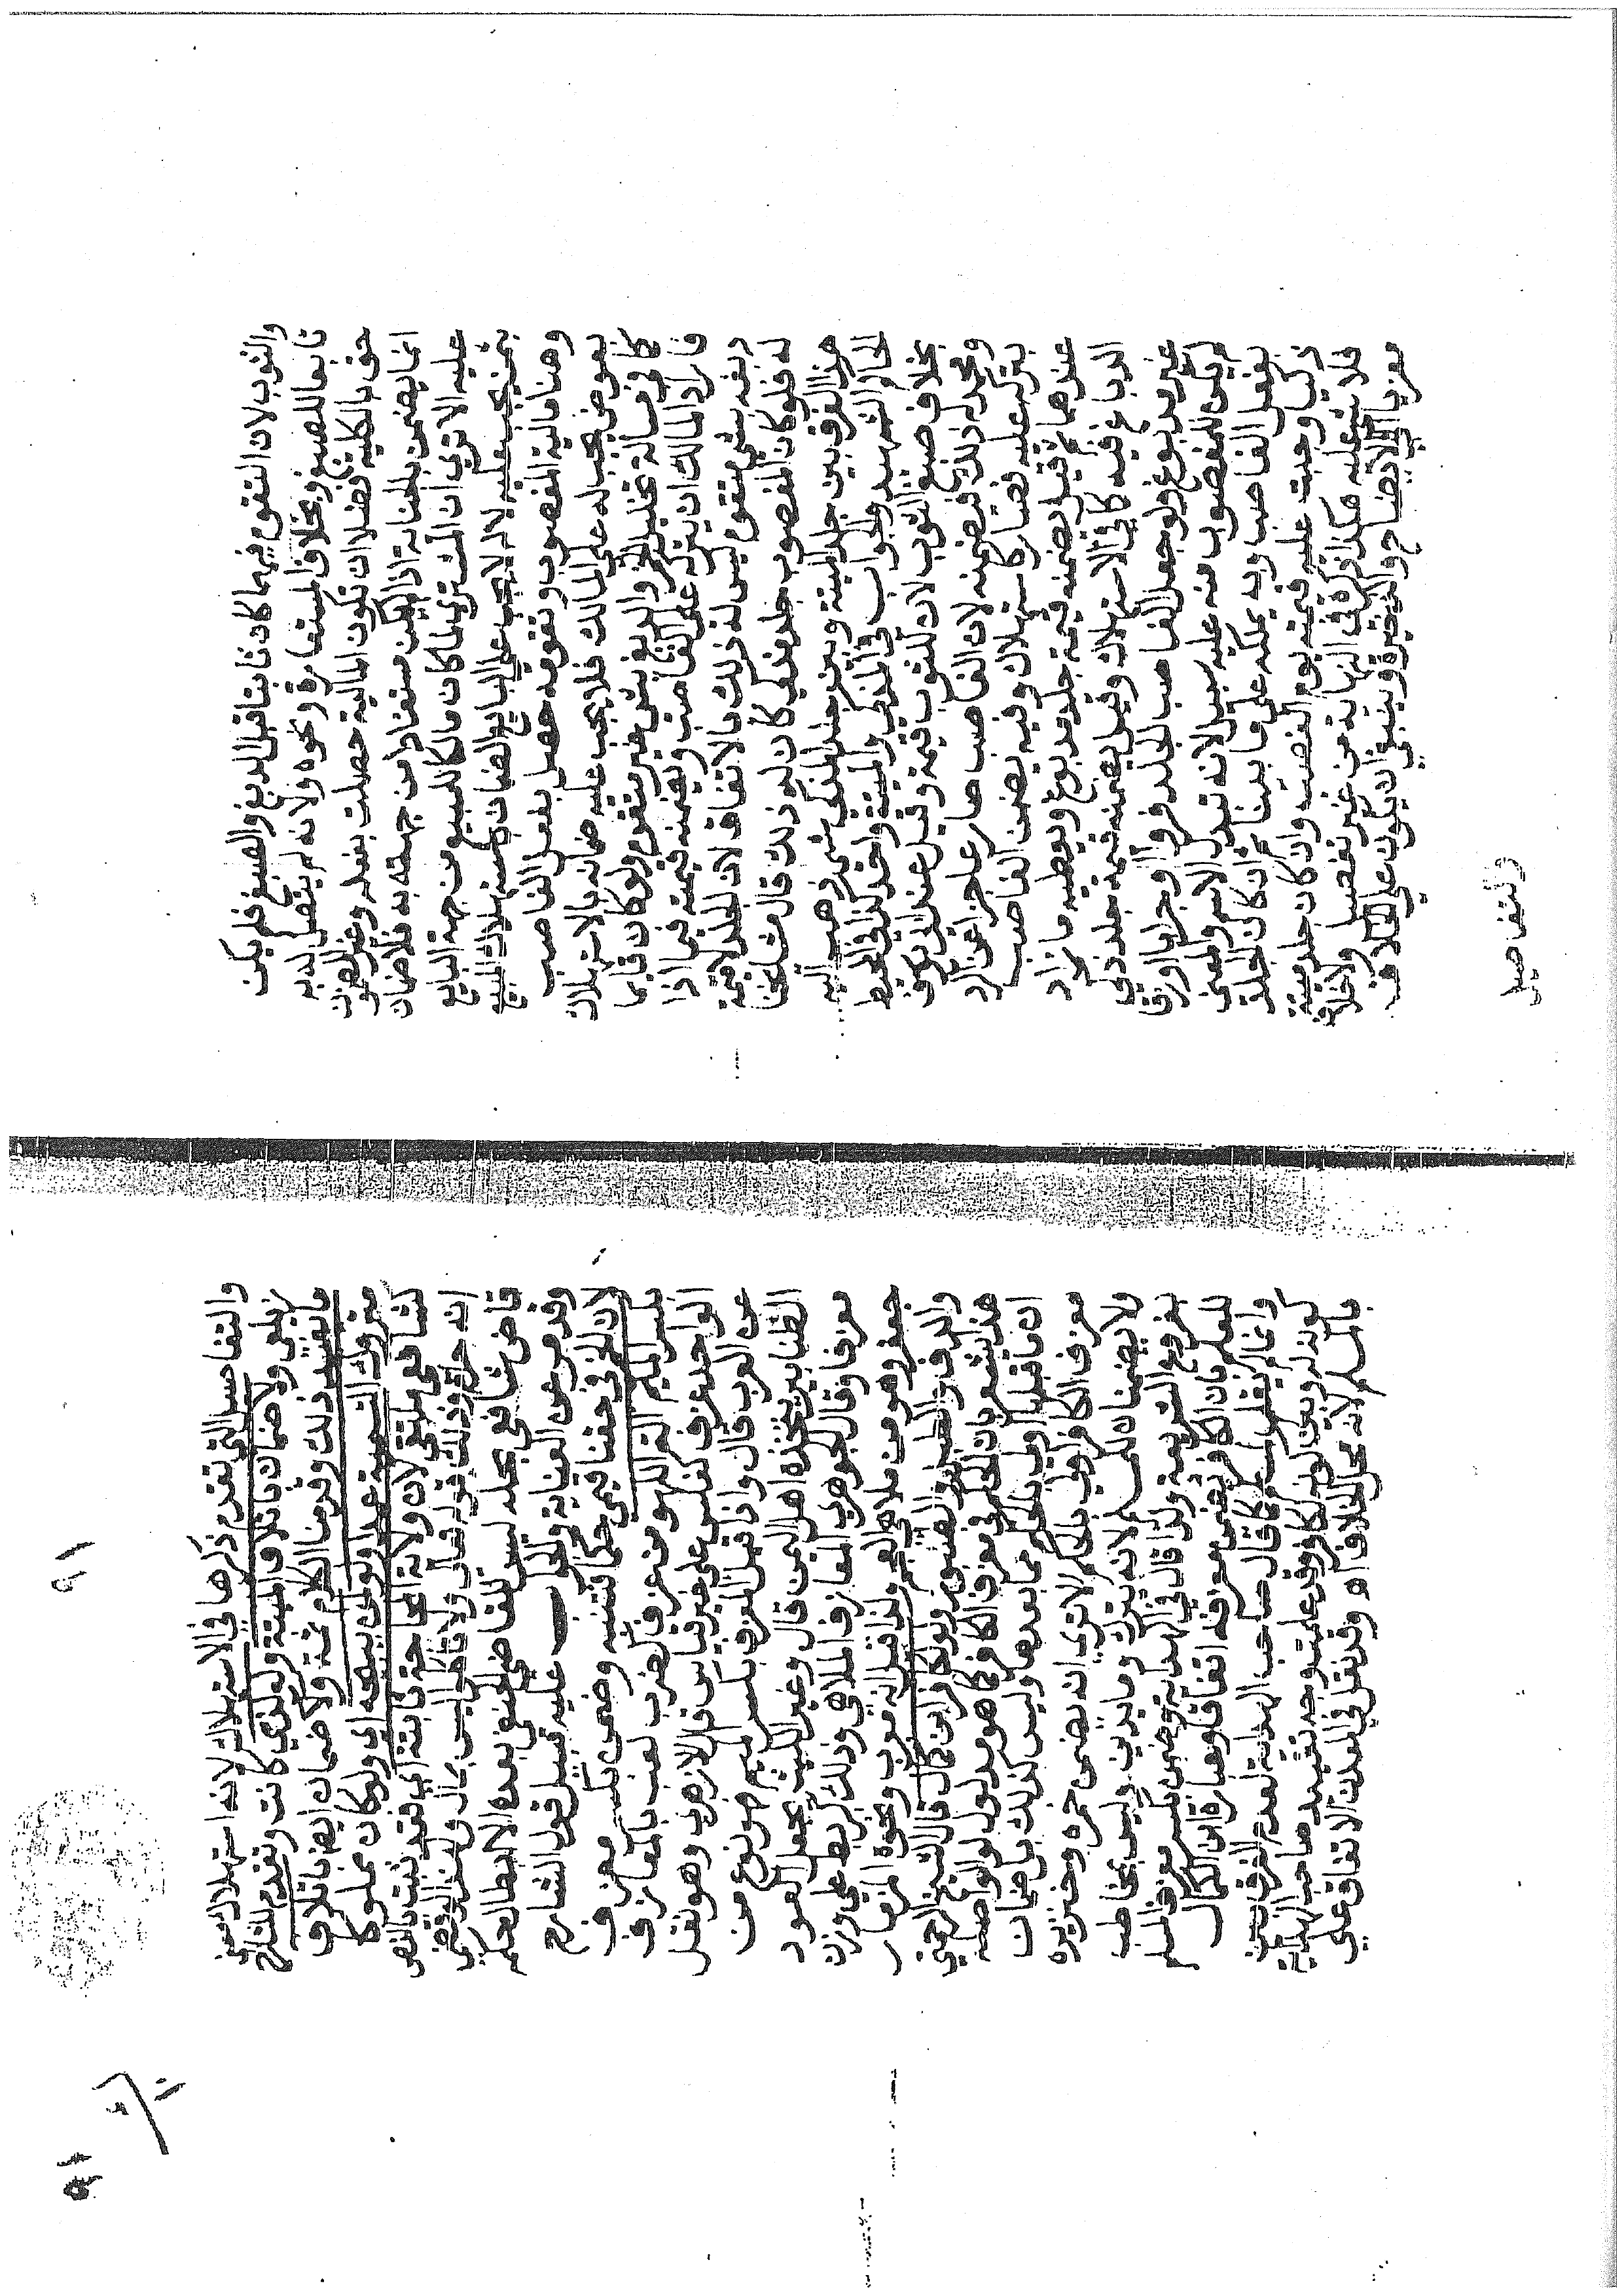 والثوب لان التقوم فيهما كان ثابتا قبل الدبغ والصبغ فلم يكن
تابعا للصبغ وبخلاف المستعارة ونحوه ولانه لم يتصل لديه
حق بالكلية فضلا ان تكون المالية حصلت بفعله وغير المغصوب
انما يضمن بالجناية اذا لم يكن مستفادا من جهته به فلا ضمان
عليه الا ترى ان المشتري لما كان مالكا للمبيع من جهة البايع
بثمن يجب عليه لا يجب علي البايع الضمان باستهلاك المبيع
وهنا مالية المغصوب وتقومه حصل بفعل الغاصب
بعوض يجب له على المالك فلا يجب عليه ضمانه بالاستهلاك
كما في مسالة تخليل الخمر والدبغ بشي غير متقوم ولو كان قايما
فاراد المالك ان يتركه على الغاصب ويضمنه قيمته فيما اذا
دبغه بشي متقوم ليس له ذلك بالاتفاق لان الجلد لا قيمة
له فلو كان المغصوب جلد مذكى كان له ذلك قال مشايخنا
هذا الفرق بين جلد الميتة وبين جلد المذكى شي ذهب اليه
الحاكم الشهيد والجواب في المذكى والميتة واحد كذا في المحيط
بخلاف صبغ الثوب لان للثوب قيمة وقيل عند ابي يوسف
ومحمد له ذلك فيضمنه لان الغاصب صار عاجزا عن الرد
بتركه عليه فصار كاستهلاك وفيه يضمن الغاصب
عندهما ثم قيل يضمنه قيمة جلد مدبوغ ويعطيه ما زاد
الدباغ فيه كما في الاستهلاك وقيل يضمنه قيمة جلد ذكي
غير مدبوغ ولو جعل الغاصب الجلد فروا او جرابا او زقا
لم يكن للمغصوب منه عليه سبيل لانه تبدل الاسم والمعنى
بفعل الغاصب وبه يملكه على ما بينا ثم ان كان الجلد
ذكيا وجبت عليه قيمته يوم الغصب وان كان جلد ميتة
فلا شي عليه هكذا ذكره في النهاية من غير تفصيل ولا خلاف
معزيا الي الايضاح والذخيرة وينبغي ان يكون علي الخلاف
والتفاصيل
٩١
والتفاصيل التي تقدم ذكرها في الاستهلاك لانه استهلاك معنى
زيلعي ولا ضمان باتلاف الميتة ولو لذمي كانت وتقدم للشارح
ما يفيد ذلك وقدمنا الكلام ثمة ولا ضمان ايضا باتلاف
متروك التسمية عمدا ولو لمن يبيحه اي ولو كان مملوكا
لشافعي ملتقى لان ولاية المحاجة ثابتة اي فقد ثبت بالنص
انه حرام وذلك قوله تعالى ولا تاكلوا ليس بمال ولو نفذ القضا
قاض شافعي بحله ليس للقاضي الحنفي بعده الا ابطال حكم
وقد مر عن العناية والجواب عليه قبيل قول الشارح
لان الخمر في حقنا قيمي حكما فتنبه وضمن بكسر معزف
بكسر الميم الة اللهو من عزف كضرب لعب بالمعازف
الواحد عزف كفلس على غير قياس قال الازهري وهو نقل
عن العرب قال واذا قيل المعزف بكسر الميم فهو نوع من
الطنابير يتخذه اهل اليمن قال وغير الليث يجعل العود
معزفا وقال الجوهري المعازف الملاهي وذلك كبربط على وزن
جعفر وهو من ملاهي العجم ولهذا قيل انه معرب ونحوه المزمار
والدف والطبل والصنبور ولو لكافر ابن كمال قال الشيخ الرحمتي
هذا يشعر بان الحكم في معزف الكافر كما هو مدلول لو الواصلة
ان ما قبلها اولى بالحكم مما بعدها وليس كذلك بل ضمان
معزف الكافر اولى بالحكم الا ترى انه يضمن خمره وخنزيره
ولا يضمنان للمسلم لانه يترك وما يدين وليس يخاطب
بفروع الشريعة ولذا قال في الهداية وضمن بكسر معزف المسلم
للعلم بان الكافر يضمن معزفه اتفاقا وعبارة ابن الكمال
وانما لم يقل لمسلم كما قال صاحب الهداية لعدم الفرق بين
كونه له وبين كونه لكافر وقد علمت وجه تقييد صاحب الهداية
بالمسلم لانه محل الخلاف اه وقد نقل في المعدن الاتفاق علي
٩١